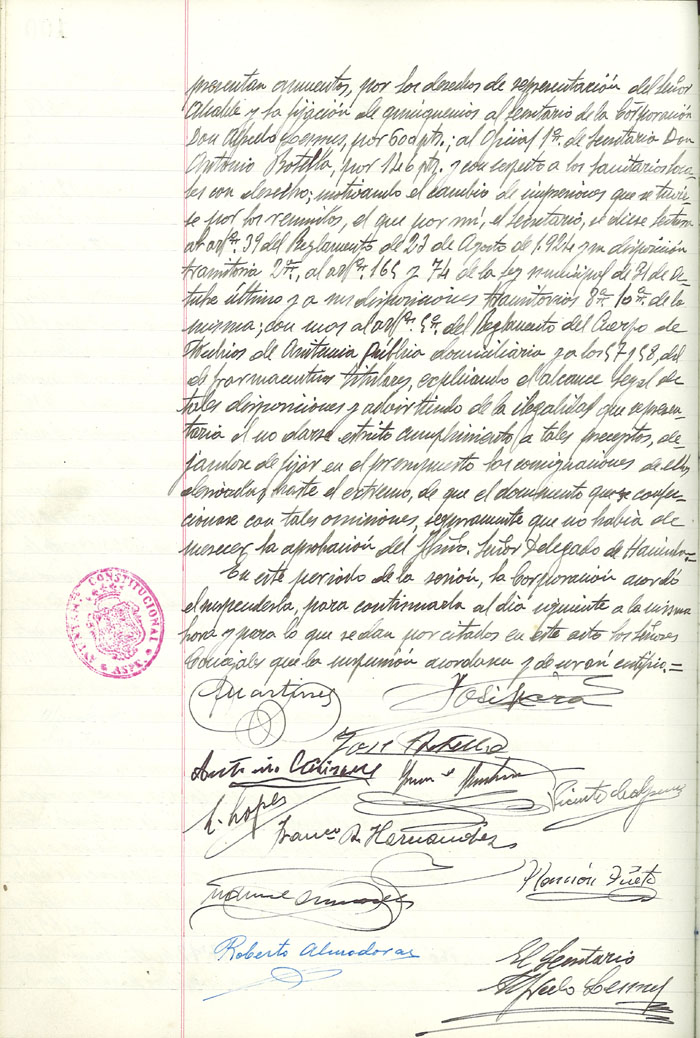 presentan aumentos, por los derechos de representación del Señor
Alcalde y la fijación de quinquenios al Secretario de la Corporación
Don Alfredo, por 600 pts.; al Oficial 1º. de Secretaria Don
Antonio Botella, por 146 pts. y con respecto a los Sanitarios loca-
les con derecho; motivando el cambio de impresiones que se tuvie-
se por los reunidos, el que por mí, el Secretario, se diese lectura
al artº. 39 del Reglamento de 23 de Agosto de 1.924 y su disposición
transitoria 2ª., al artº. 165 y 74 de la Ley municipal de 31 de Oc-
tubre último y a sus disposiciones transitorias 8ª 10ª de la
misma; con mas al artº. 5º. del Reglamento del Cuerpo de
Médicos de Asistencia Pública domiciliaria y a los 57 y 58, del
de farmaceuticos titulares, explicando el alcance legal de
tales disposiciones y advirtiendo de la ilegalidad que represen-
taria el no darse estricto cumplimiento a tales preceptos, de-
jandose de fijar en el presupuesto las consignaciones de ellos
hasta el extremo, de que el documento que se confec-
cionase con tales omisiones, seguramente que no habia de
merecer la aprobación del Iltmo. Señor Delegado de Hacienda.=
En este periodo de la sesión, la Corporación acordó
el suspenderla, para continuarla al día siguiente a la misma
hora y para lo que se dan por citados en este acto los Señores
Concejales que la suspensión acordasen y de su orán certifico.=
AYUNTAMTO CONSTITUCIONAL
ASPE
Martinez
José
José Botella
Antonio
Vicente
L. Lopes
Franco A. Hernandez
Ramón Prieto
Manuel
Roberto Almodovar
El Secretario
Alfredo